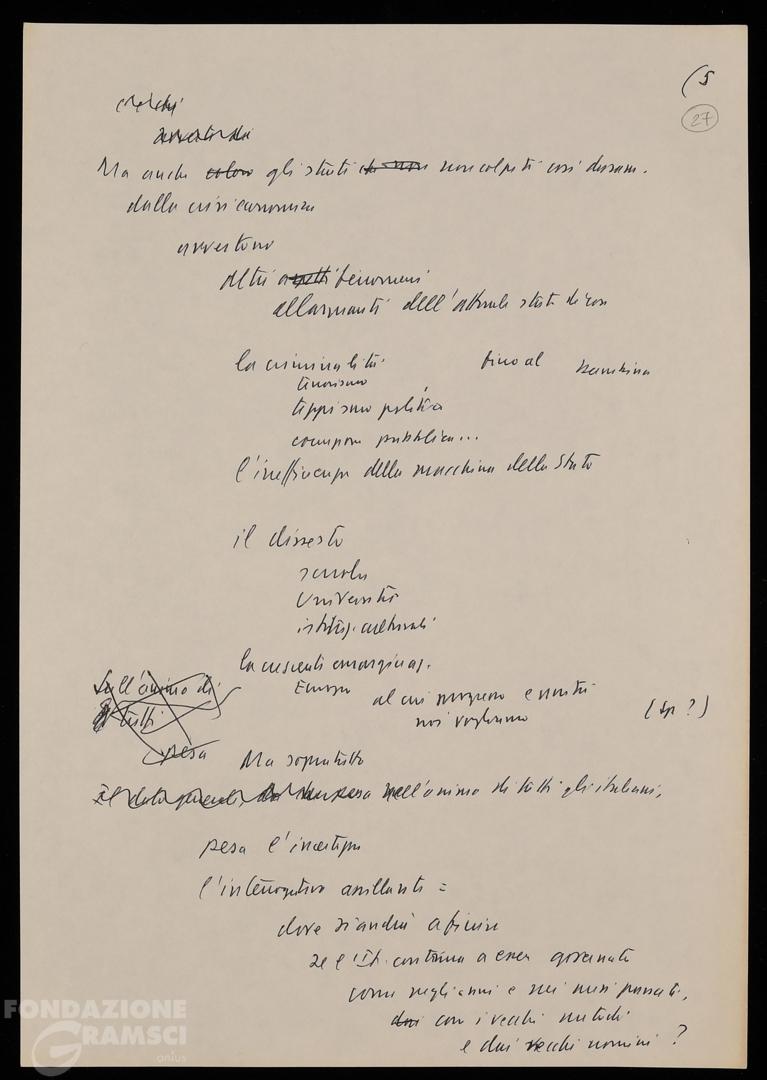 (5
27
Ma anche coloro gli strati che non non colpiti così duram.
dalla crisi economica
avvertono
altri aspetti fenomeni
allarmanti dell'attuale stato di cose
la criminalità fino al
terrorismo
teppismo politico
corruzione pubblica...
l'inefficienza della macchina dello Stato
il dissesto
scuola
Università
istituz. culturali
la crescente emarginaz.
Europa al cui progresso e unità (sp ?)
noi vogliamo
sull'animo di
tutti
pesa
Ma sopratutto
nell'animo di tutti gli italiani,
pesa l'incertezza
l'interrogativo assillante =
dove si andrà a finire
se l'It. continua a esser governata
come negli anni e nei mesi passati,
dai con i vecchi metodi
e dai vecchi uomini ?
FONDAZIONE
GRAMSCI
onlus